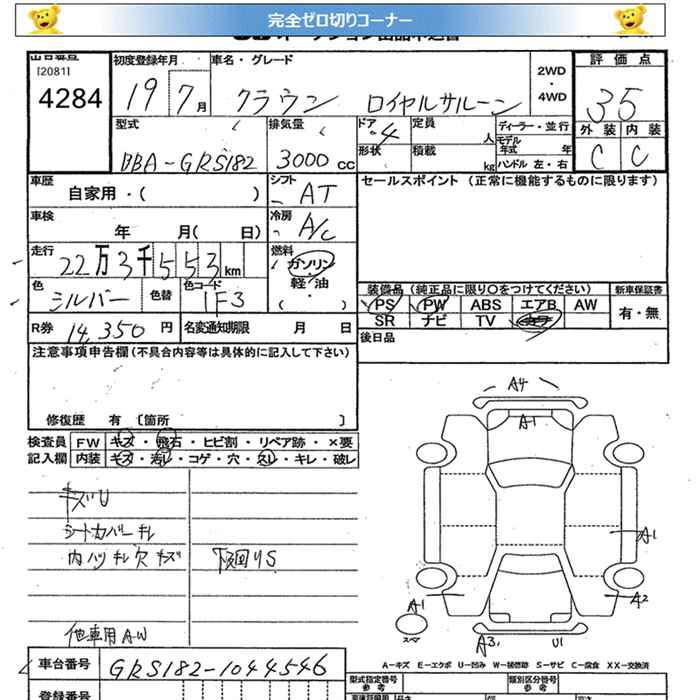 完全ゼロ切りコーナー
[2081]
4284
初度登録年月
19 7月
車名・グレード
クラウン ロイヤルサルーン
2WD
・
4WD
評価点
35
外装 内装
C C
型式
BBA-GRS182
排気量
3000 CC
ドア 4
形状
定員 人
積載 kg
ディーラー・並行
モデル年式 年
ハンドル 左・右
車歴
自家用・( )
シフト AT
セールスポイント (正常に機能するものに限ります)
車検
年 月( 日)
冷房 A/C
走行
22万3千553km
燃料
ガソリン
軽・油
( ・ )
色
シルバー
色替
色コード
1F3
装備品 (純正品に限り○をつけてください)
新車保証書
PS PW ABS エアB AW
有・無
SR ナビ TV
R券 14,350 円
名変通知期限 月 日
後日品
注意事項申告欄 (不具合内容等は具体的に記入して下さい)
修復歴 有 〔箇所 〕
検査員 FW キズ・飛石・ヒビ割・リペア跡・×要
記入欄 内装 キズ・汚レ・コゲ・穴・スレ・キレ・破レ
キズU
シートカバーキレ
内ハリキレ穴キズ
下回りS
他車用AW
A4
A1
A1
A1
A2
スペア
A3 U1
A-キズ E-エクボ U-凹み W-補修跡 S-サビ C-腐食 XX-交換済
車台番号 GRS182-1044546
型式指定番号
参考
類別区分番号
参考
登録番号